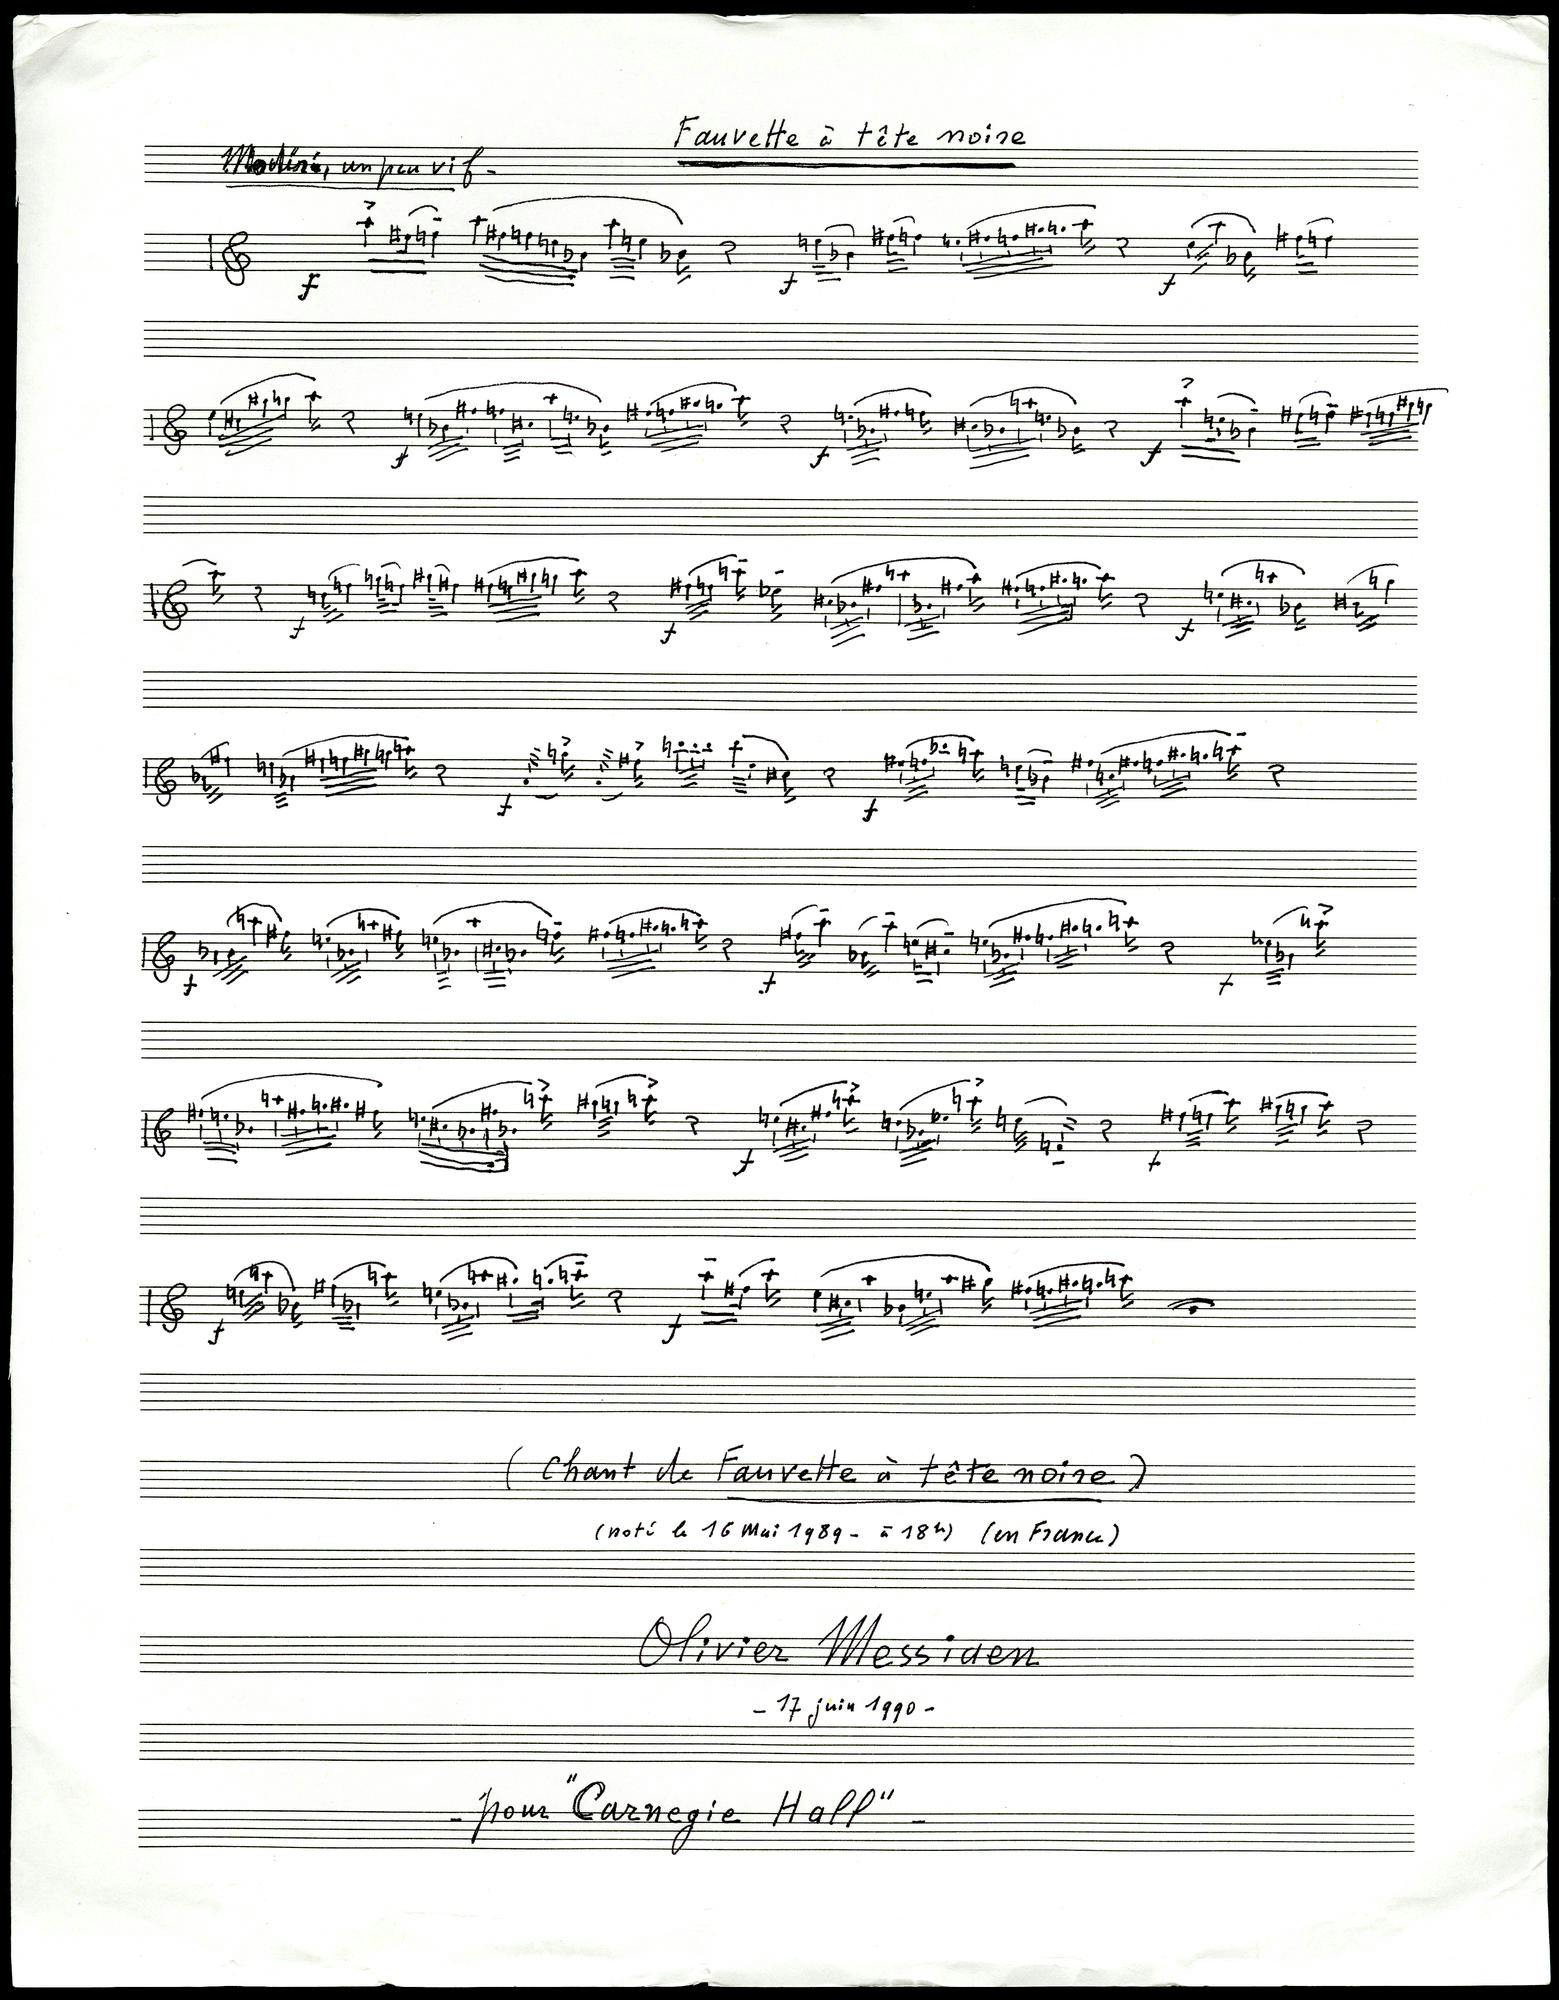 Fauvette à tête noire
Modéré, un peu vif -
f f f
f f f
f f f
f f
f f f
f f
f f
(Chant de Fauvette à tête noire)
(noté le 16 Mai 1989 - à 18h) (en France)
Olivier Messiaen
- 17 juin 1990 -
- pour "Carnegie Hall" -